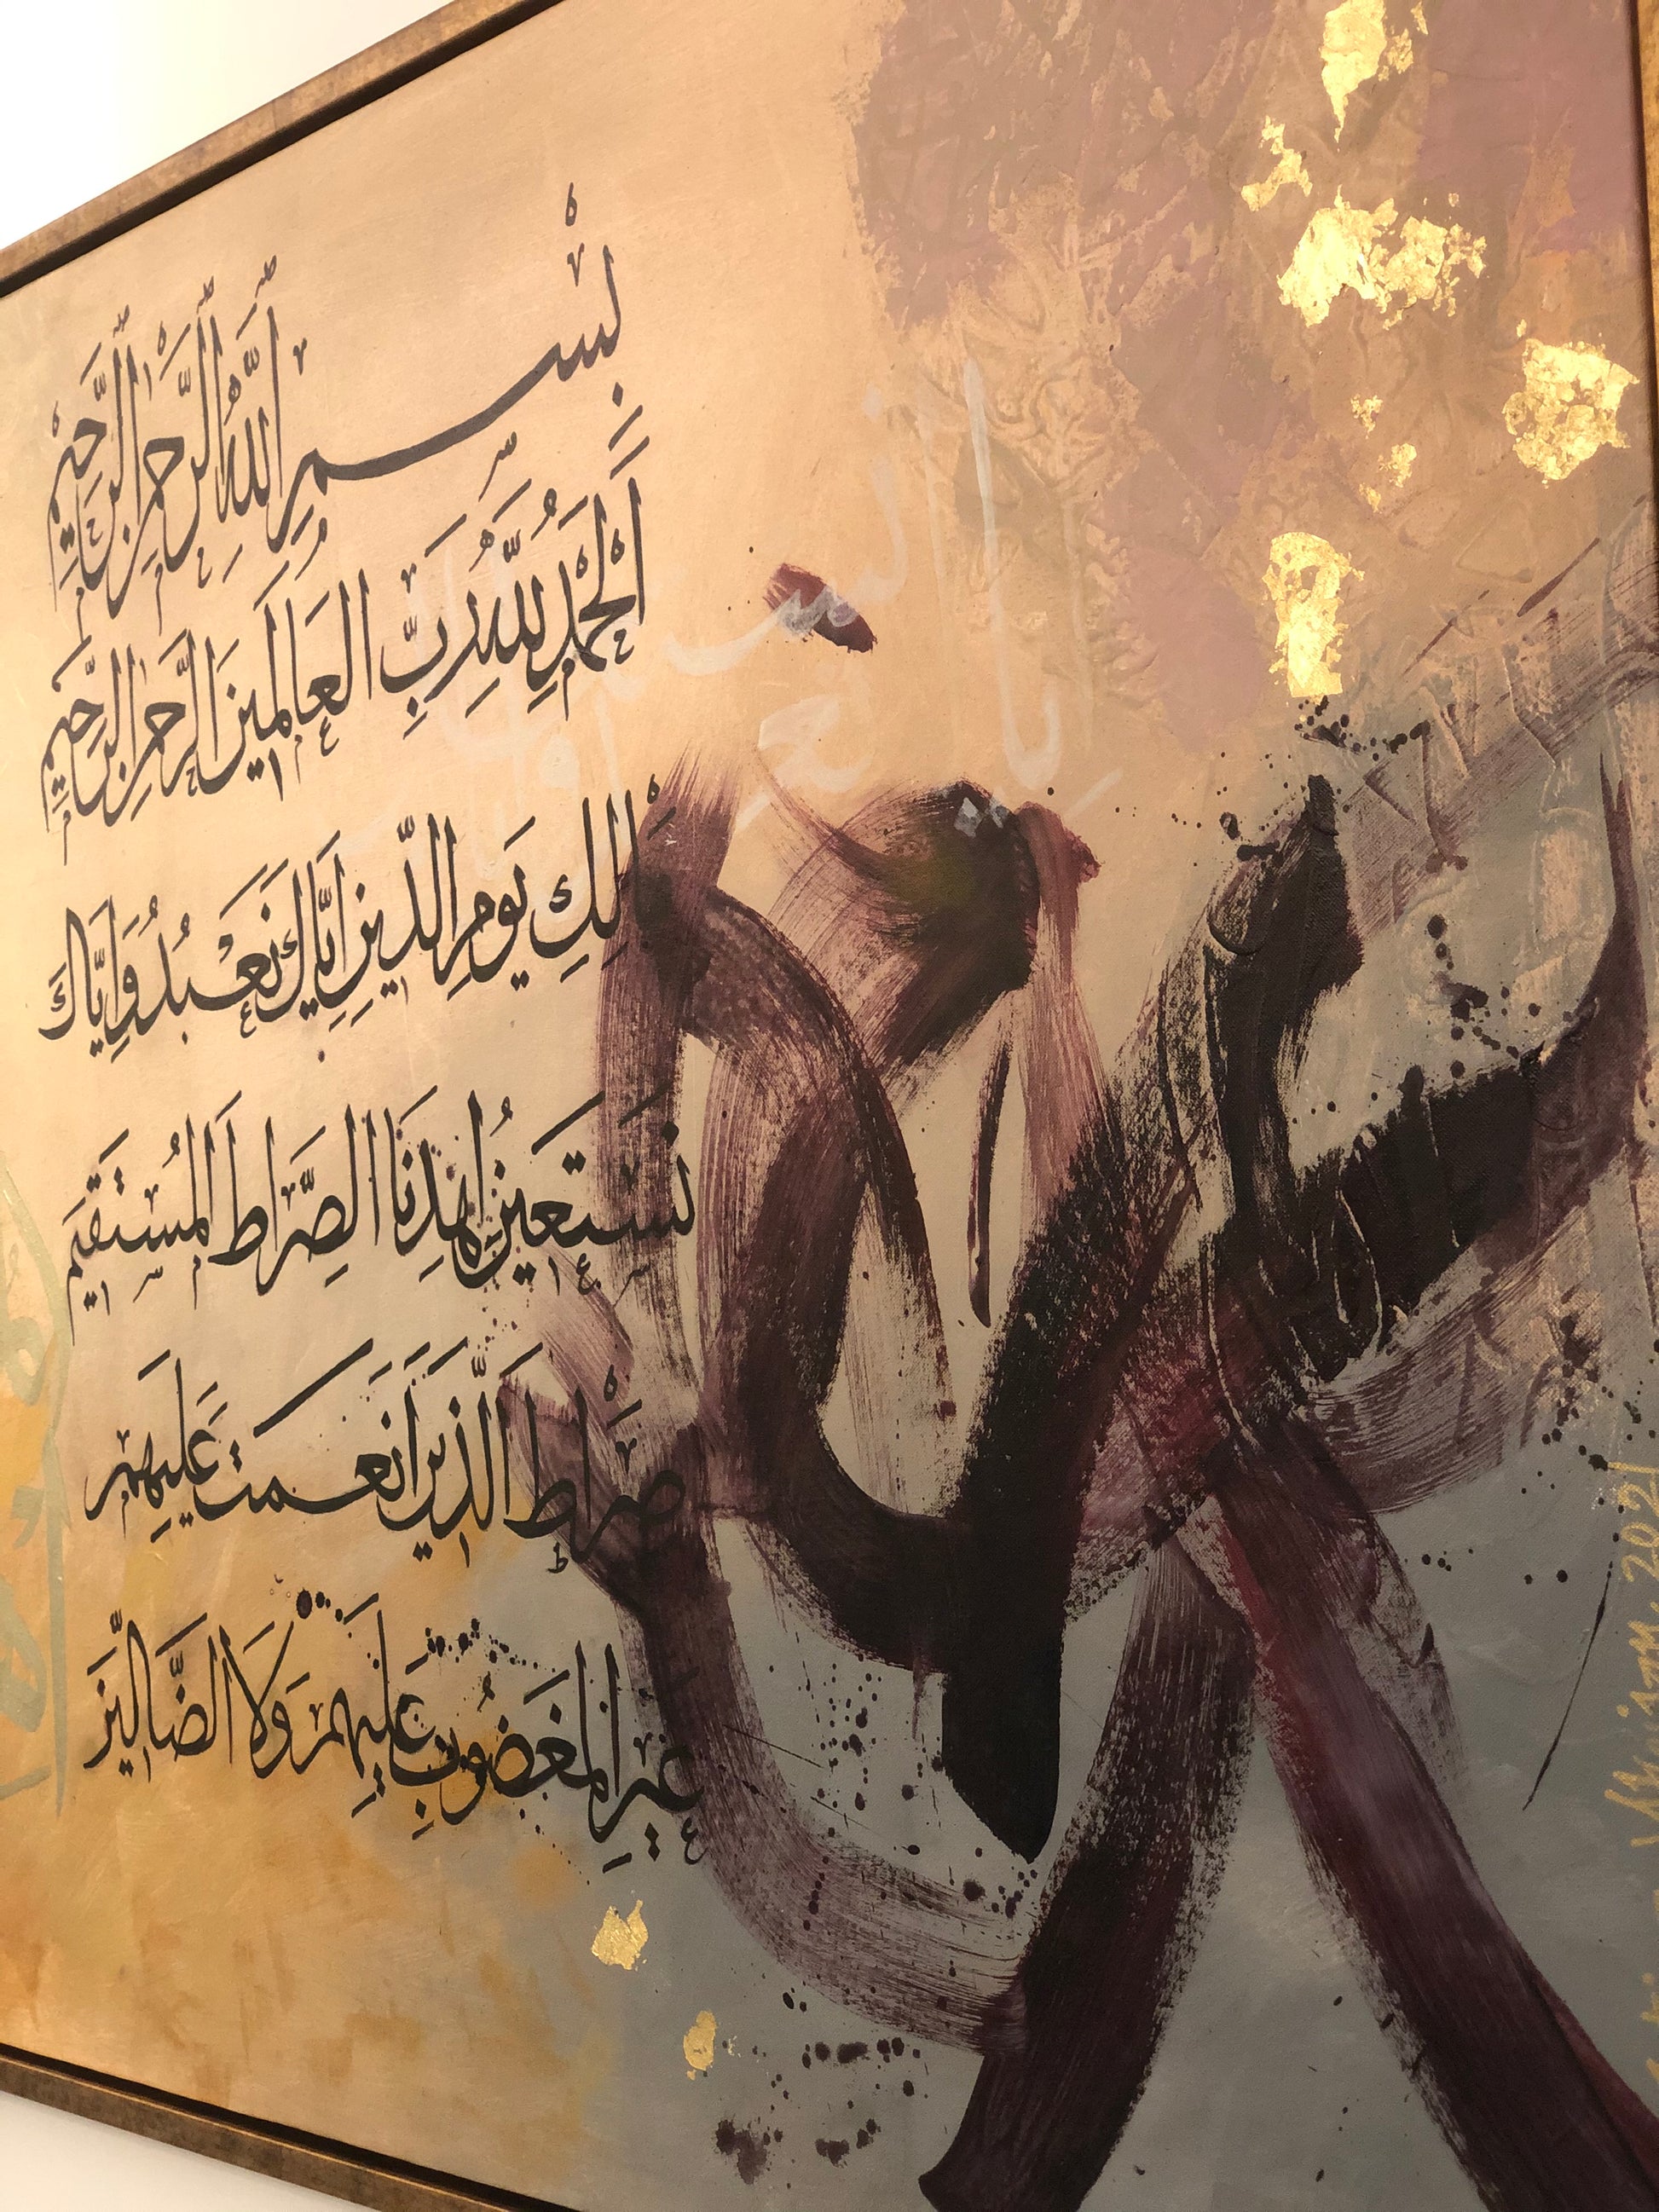 بِسْمِ اللَّهِ الرَّحْمَٰنِ الرَّحِيمِ
اَلْحَمْدُ لِلَّهِ رَبِّ الْعَالَمِينَ الرَّحْمَٰنِ الرَّحِيمِ
مَالِكِ يَوْمِ الدِّينِ إِيَّاكَ نَعْبُدُ وَإِيَّاكَ
نَسْتَعِينُ اهْدِنَا الصِّرَاطَ الْمُسْتَقِيمَ
صِرَاطَ الَّذِينَ أَنْعَمْتَ عَلَيْهِمْ
غَيْرِ الْمَغْضُوبِ عَلَيْهِمْ وَلَا الضَّالِّينَ
2021